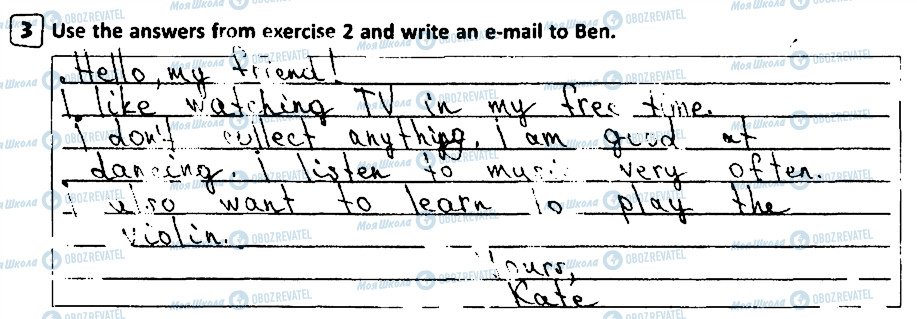 3 Use the answers from exercise 2 and write an e-mail to Ben.
Hello, my friend!
I like watching TV in my free time.
I don't collect anything. I am good at
dancing. I listen to music very often.
I also want to learn to play the
violin.
Yours,
Kate